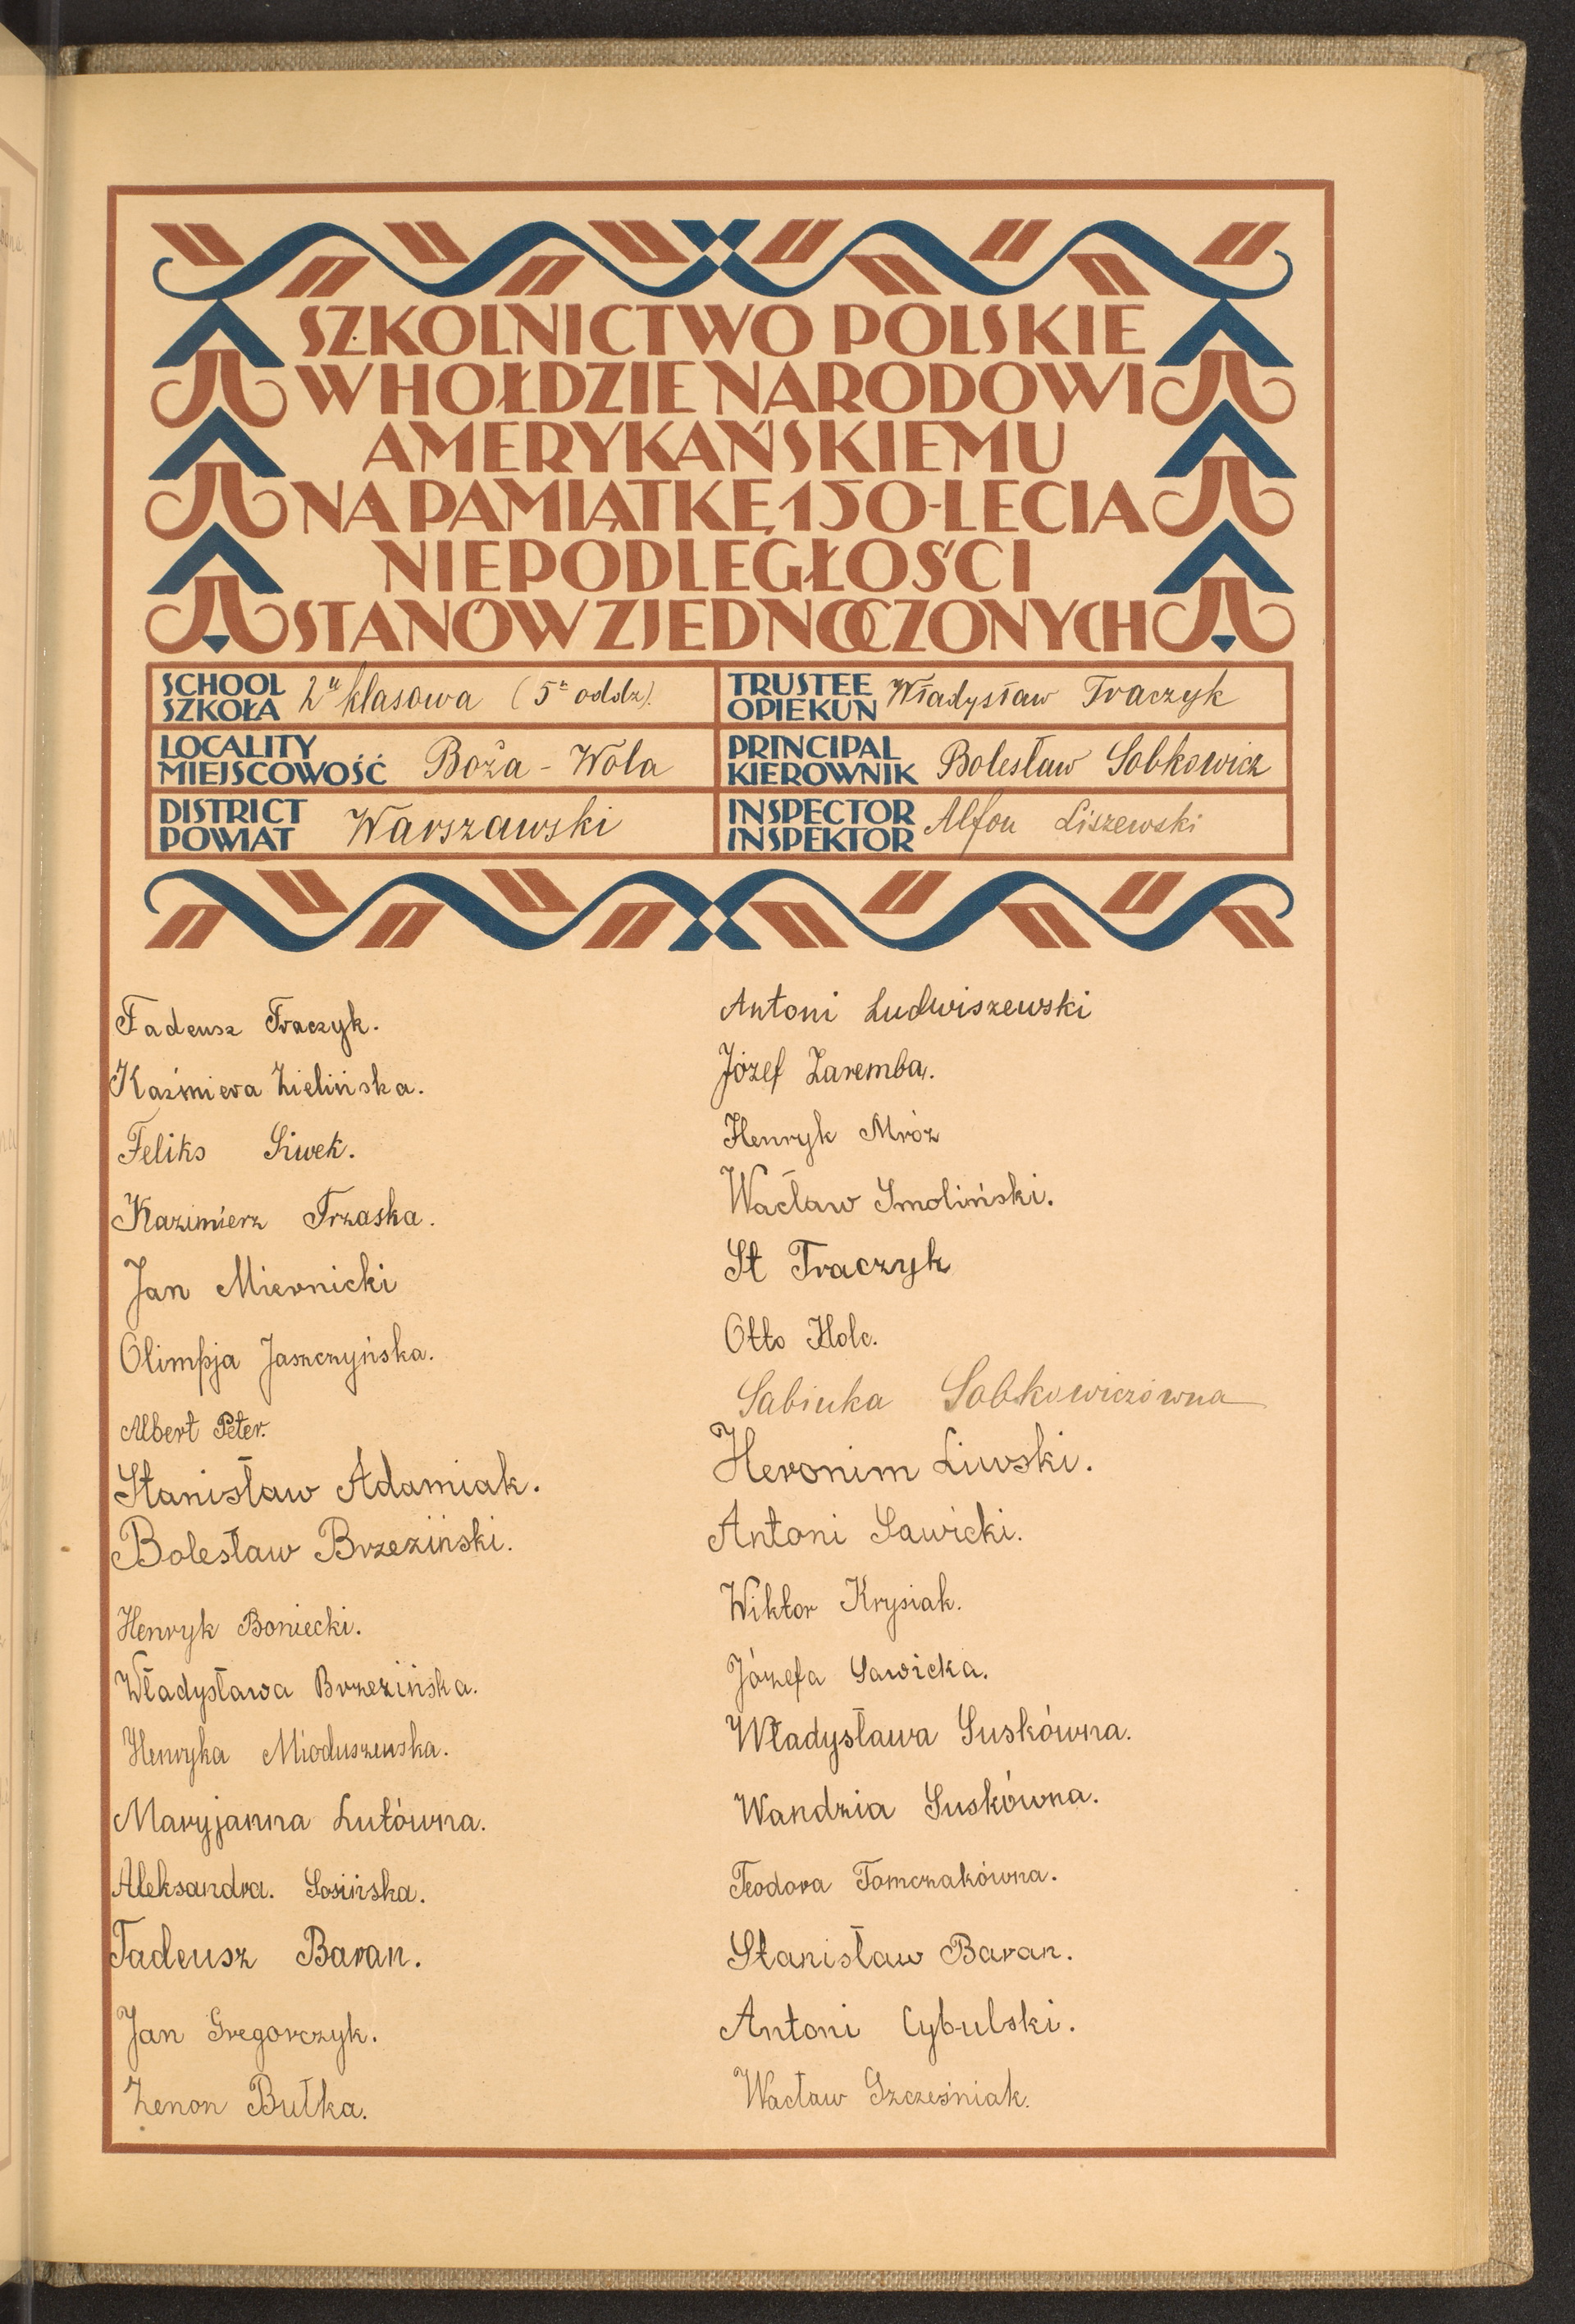 SZKOLNICTWO POLSKIE
W HOŁDZIE NARODOWI
AMERYKAŃSKIEMU
NA PAMIĄTKĘ 150-LECIA
NIEPODLEGŁOŚCI
STANÓW ZJEDNOCZONYCH
SCHOOL
SZKOŁA 2u klasowa (5t oddz).
TRUSTEE
OPIEKUN Władysław Traczyk
LOCALITY
MIEJSCOWOŚĆ Boża - Wola
PRINCIPAL
KIEROWNIK Bolesław Sobkowicz
DISTRICT
POWIAT Warszawski
INSPECTOR
INSPEKTOR Alfon Liszewski
Tadeusz Traczyk.
Kaźmiera Zielińska.
Feliks Siwek.
Kazimierz Trzaska.
Jan Miernicki
Olimpja Jaszczyńska.
Albert Peter.
Stanisław Adamiak.
Bolesław Brzeziński.
Henryk Boniecki.
Władysława Brzezińska.
Henryka Mioduszewska.
Maryjanna Lutówna.
Aleksandra. Sosińska.
Tadeusz Baran.
Jan Gregorczyk.
Zenon Bułka.
Antoni Ludwiszewski
Józef Zaremba.
Henryk Mróz
Wacław Smoliński.
St Traczyk
Otto Holc.
Sabinka Sobkowiczówna
Heronim Liwski.
Antoni Sawicki.
Wiktor Krysiak.
Józefa Sawicka.
Władysława Suskówna.
Wandzia Suskówna.
Teodora Tomczakówna.
Stanisław Baran.
Antoni Cybulski.
Wacław Szcześniak.